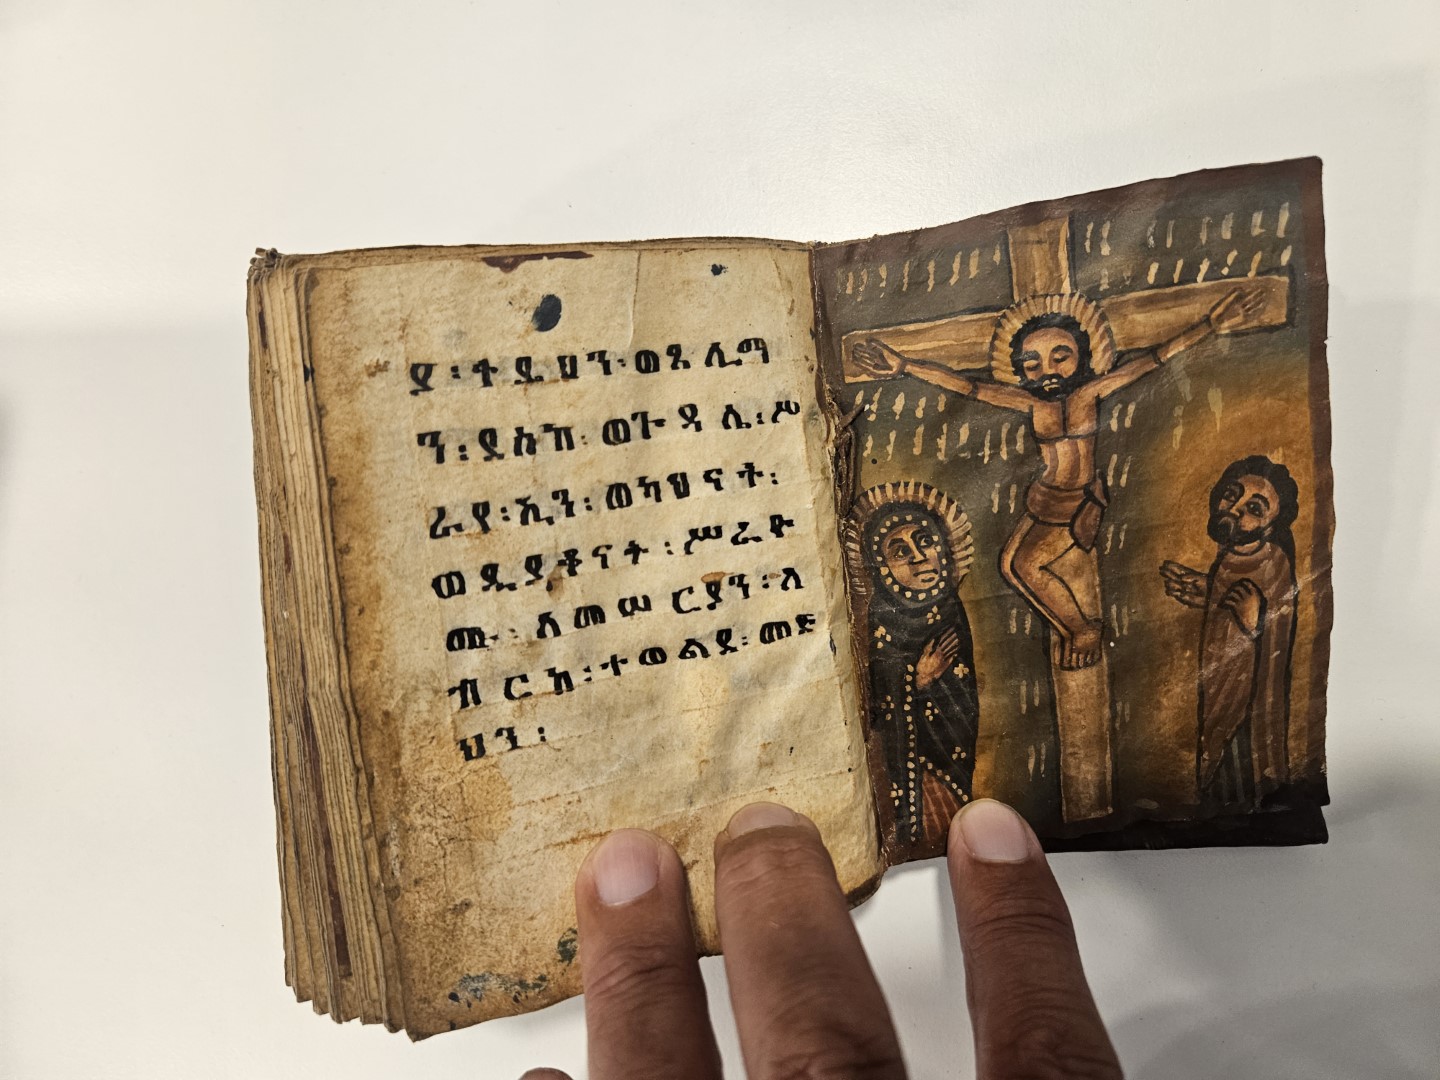 ያ፡ተ ደ ህን፡ወጼ ሊማ
ን፡ደስከ፡ወጐ ዳ ሌ፡ሥ
ራየ፡ኢን፡ወካህ ና ት፡
ወ ዲያቆና ት፡ሥራዮ
ሙ፡ለመ ሠ ርያን፡ለ
ብ ር አ፡ተ ወልደ፡መድ
ህን፡